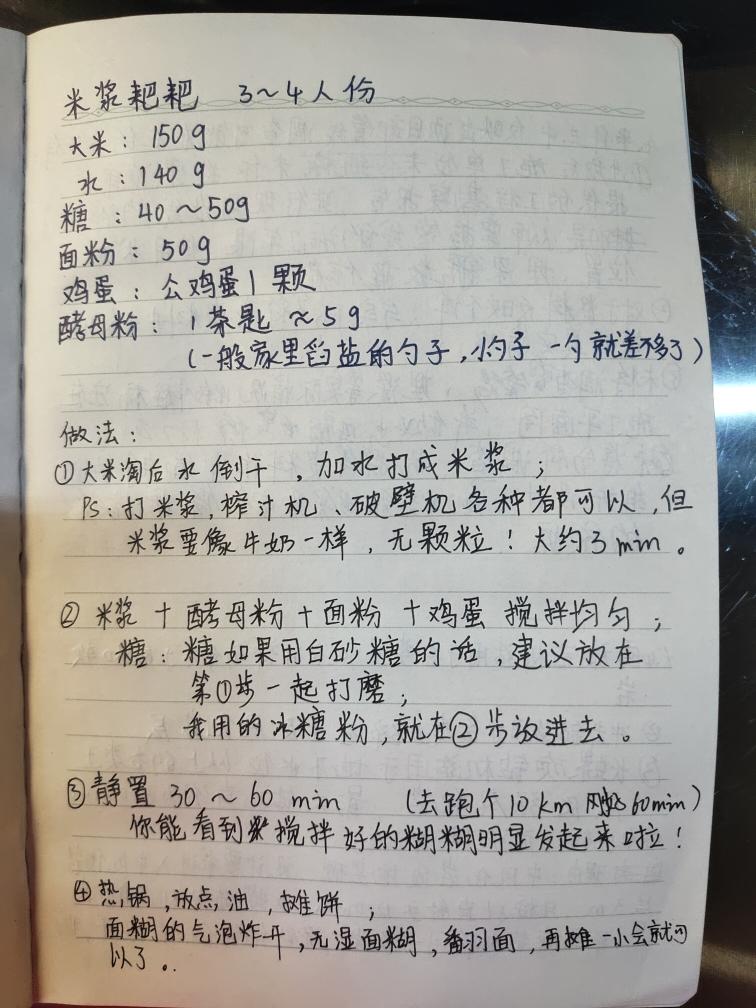 米浆耙耙 3~4人份
大米: 150g
水: 140g
糖: 40~50g
面粉: 50g
鸡蛋: 公鸡蛋1颗
酵母粉: 1茶匙≈5g
(一般家里舀盐的勺子,小勺子一勺就差不多了)
做法:
①大米淘后水倒干,加水打成米浆;
PS:打米浆,榨汁机、破壁机各种都可以,但
米浆要像牛奶一样,无颗粒!大约3min。
② 米浆+酵母粉+面粉+鸡蛋搅拌均匀;
糖:糖如果用白砂糖的话,建议放在
第①步一起打磨;
我用的冰糖粉,就在②步放进去。
③静置30~60min (去跑个10km刚好60min)
你能看到搅拌好的糊糊明显发起来啦!
④热锅,放点油,摊饼;
面糊的气泡炸开,无湿面糊,翻面,再摊一小会就可
以了。